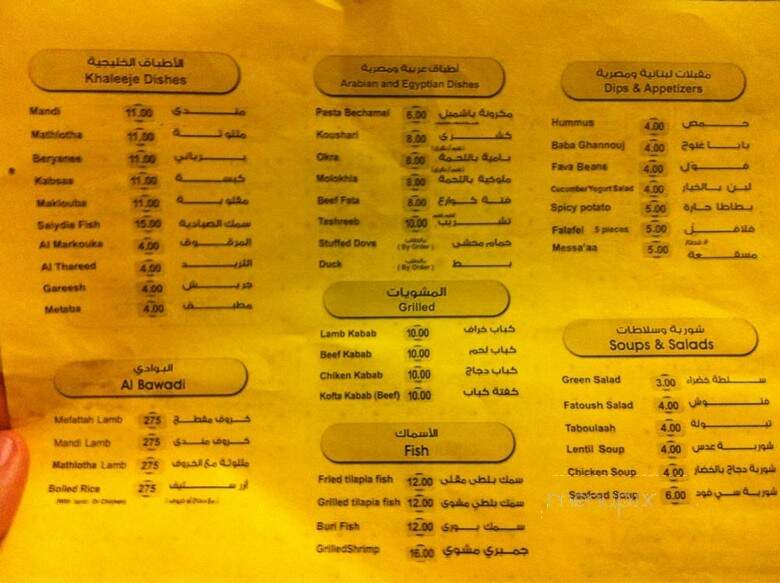 الأطباق الخليجية
Khaleeje Dishes
Mandi 11.00 منـــدي
Mathlotha 11.00 مثلوثــة
Beryanee 11.00 بـــرياني
Kabsaa 11.00 كبـســة
Maklouba 11.00 مقلوبــة
Saiydia Fish 15.00 سمك الصيادية
Al Markouka 4.00 المرقــوق
Al Thareed 4.00 الثريـــد
Gareesh 4.00 جريـــش
Metaba 4.00
البوادي
Al Bawadi
Mefattah Lamb 275 خــروف مفطــح
Mandi Lamb 275 خــروف منــدي
Mathlotha Lamb 275 مثلوثة مع الخروف
Boiled Rice 275 أرز ســليق
(With Lamb Or Chicken) (مع دجاج أو خروف)
أطباق عربية ومصرية
Arabian and Egyptian Dishes
Pasta Bechamel 6.00 مكرونة باشميل
Koushari 8.00 كشـــري
Okra 8.00 بامية باللحمة
Molokhia 8.00 ملوخية باللحمة
Beef Fata 8.00 فتــة كــوارع
Tashreeb 10.00 تشـــريب
Stuffed Dove (By Order) بالطلب حمام محشي
Duck (By Order) بالطلب بـــط
المشويات
Grilled
Lamb Kabab 10.00 كباب خراف
Beef Kabab 10.00 كباب لحم
Chiken Kabab 10.00 كباب دجاج
Kofta Kabab (Beef) 10.00 كفتة كباب
الأسماك
Fish
Fried tilapia fish 12.00 سمك بلطي مقلي
Grilled tilapia fish 12.00 سمك بلطي مشوي
Buri Fish 12.00 سمــك بــوري
GrilledShrimp 16.00 جمبري مشوي
مقبلات لبنانية ومصرية
Dips & Appetizers
Hummus 4.00 حـــمص
Baba Ghannouj 4.00 بابا غنوج
Fava Beans 4.00 فـــول
Cucumber Yogurt Salad 4.00 لبن بالخيار
Spicy potato 5.00 بطاطا حارة
Falafel 5 pieces 5.00 فلافــل
Messa'aa 5.00 مسقعــة
شوربة وسلاطات
Soups & Salads
Green Salad 3.00 سلطة خضراء
Fatoush Salad 4.00 فتـــوش
Taboulaah 4.00 تبــولة
Lentil Soup 4.00 شوربــة عدس
Chicken Soup 4.00 شوربة دجاج بالخضار
Seafood Soup 6.00 شوربة سي فود
menupix